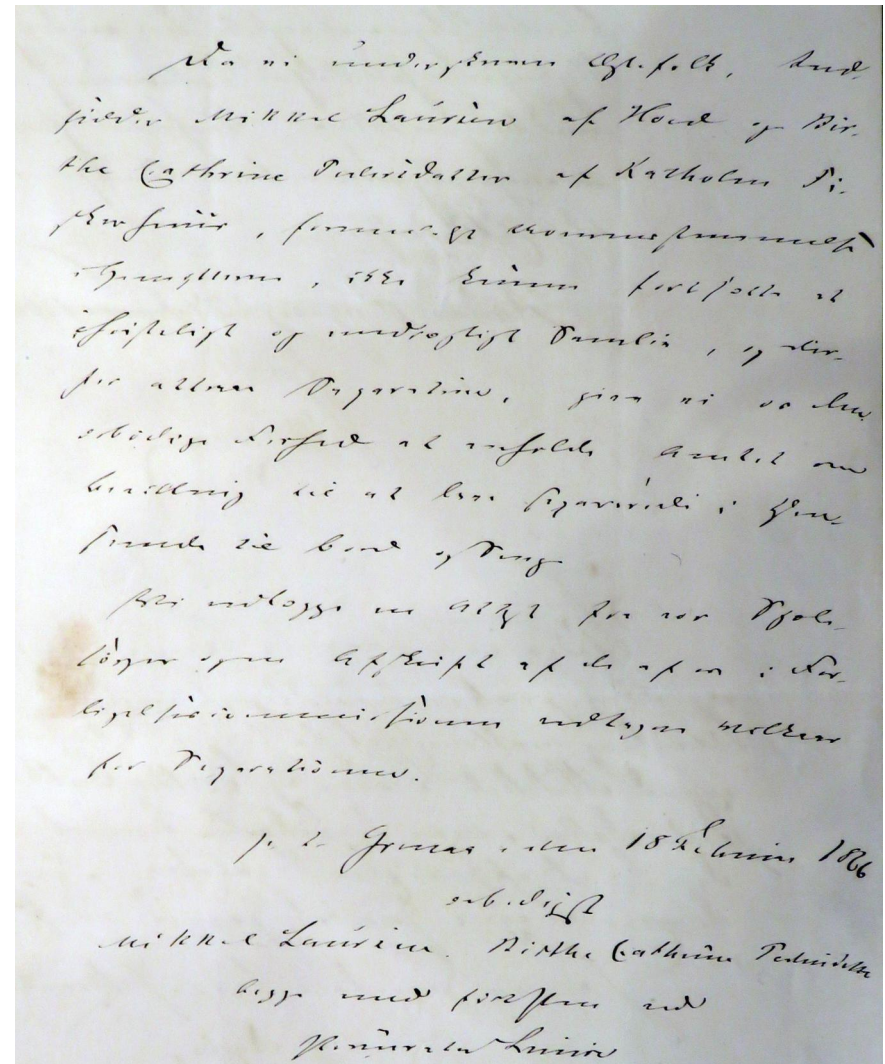 Da vi underskrevne Ægtefolk, Ind-
sidder Mikkel Laursen af Hoed og Bir-
the Cathrine Pedersdatter af Katholm Fi-
skerhuus, formedelst uovereensstemmelse
i Gemytterne, ikke kunne fortsætte et
christeligt og endrægtigt Samliv, og der-
for attraae Separation, give vi os den
ærbødige Frihed at anholde Amtet om
bevilling til at leve separerede i Hen-
seende til bord og Seng
Vi vedlægge en Attest fra vor Sjæle-
sørger og en Afskrift af de af os i For-
ligelsescommissionen vedtagne Vilkaar
for Separationen.
p. t. Grenaa, den 18 Februar 1866
ærbødigst
Mikkel Laursen. Birthe Cathrine Pedersdatter
begge med ført Pen ved